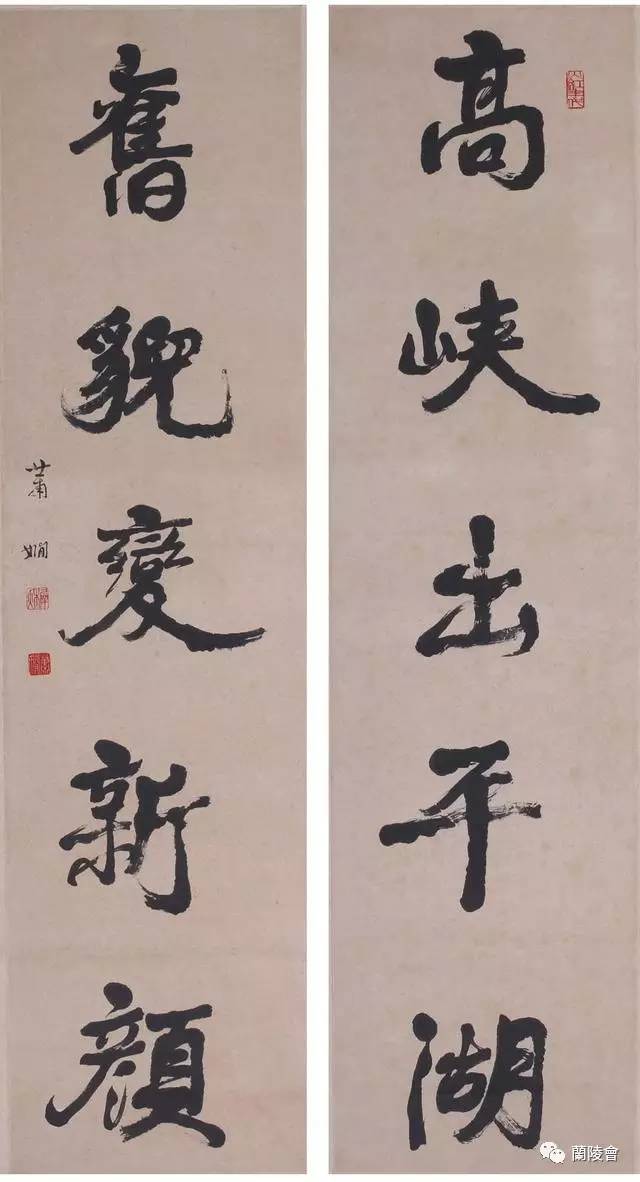 高峡出平湖
舊貌變新顏
蕭嫻
蘭陵會